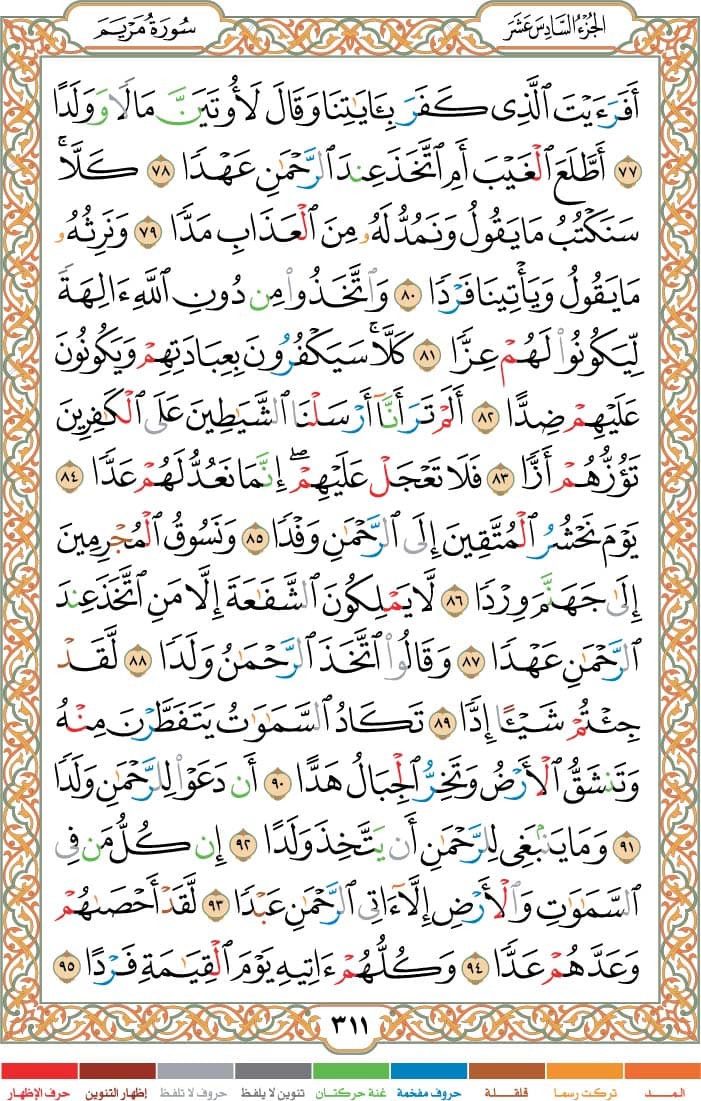 الجزء السادس عشر
سورة مريم
أَفَرَءَيْتَ ٱلَّذِى كَفَرَ بِـَٔايَـٰتِنَا وَقَالَ لَأُوتَيَنَّ مَالًا وَوَلَدًا
٧٧ أَطَّلَعَ ٱلْغَيْبَ أَمِ ٱتَّخَذَ عِندَ ٱلرَّحْمَـٰنِ عَهْدًا ٧٨ كَلَّا ۚ
سَنَكْتُبُ مَا يَقُولُ وَنَمُدُّ لَهُۥ مِنَ ٱلْعَذَابِ مَدًّا ٧٩ وَنَرِثُهُۥ
مَا يَقُولُ وَيَأْتِينَا فَرْدًا ٨٠ وَٱتَّخَذُوا۟ مِن دُونِ ٱللَّهِ ءَالِهَةً
لِّيَكُونُوا۟ لَهُمْ عِزًّا ٨١ كَلَّا ۚ سَيَكْفُرُونَ بِعِبَادَتِهِمْ وَيَكُونُونَ
عَلَيْهِمْ ضِدًّا ٨٢ أَلَمْ تَرَ أَنَّآ أَرْسَلْنَا ٱلشَّيَـٰطِينَ عَلَى ٱلْكَـٰفِرِينَ
تَؤُزُّهُمْ أَزًّا ٨٣ فَلَا تَعْجَلْ عَلَيْهِمْ ۖ إِنَّمَا نَعُدُّ لَهُمْ عَدًّا ٨٤
يَوْمَ نَحْشُرُ ٱلْمُتَّقِينَ إِلَى ٱلرَّحْمَـٰنِ وَفْدًا ٨٥ وَنَسُوقُ ٱلْمُجْرِمِينَ
إِلَىٰ جَهَنَّمَ وِرْدًا ٨٦ لَّا يَمْلِكُونَ ٱلشَّفَـٰعَةَ إِلَّا مَنِ ٱتَّخَذَ عِندَ
ٱلرَّحْمَـٰنِ عَهْدًا ٨٧ وَقَالُوا۟ ٱتَّخَذَ ٱلرَّحْمَـٰنُ وَلَدًا ٨٨ لَّقَدْ
جِئْتُمْ شَيْـًٔا إِدًّا ٨٩ تَكَادُ ٱلسَّمَـٰوَٰتُ يَتَفَطَّرْنَ مِنْهُ
وَتَنشَقُّ ٱلْأَرْضُ وَتَخِرُّ ٱلْجِبَالُ هَدًّا ٩٠ أَن دَعَوْا۟ لِلرَّحْمَـٰنِ وَلَدًا
٩١ وَمَا يَنۢبَغِى لِلرَّحْمَـٰنِ أَن يَتَّخِذَ وَلَدًا ٩٢ إِن كُلُّ مَن فِى
ٱلسَّمَـٰوَٰتِ وَٱلْأَرْضِ إِلَّآ ءَاتِى ٱلرَّحْمَـٰنِ عَبْدًا ٩٣ لَّقَدْ أَحْصَىٰهُمْ
وَعَدَّهُمْ عَدًّا ٩٤ وَكُلُّهُمْ ءَاتِيهِ يَوْمَ ٱلْقِيَـٰمَةِ فَرْدًا ٩٥
٣١١
المـــد تركت رسما قلقـــلة حروف مفخمة غنة حركتان تنوين لا يلفظ حروف لا تلفظ إظهار التنوين حرف الإظهار